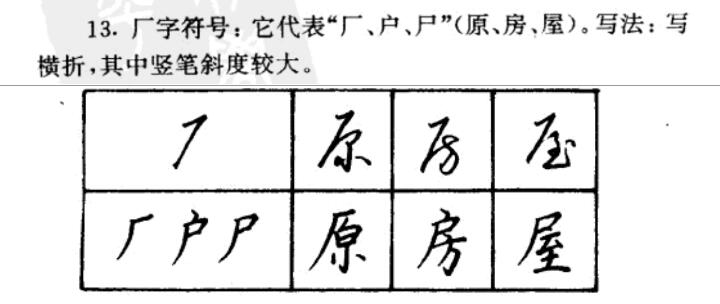 13. 厂字符号：它代表“厂、户、尸”（原、房、屋）。写法：写
横折，其中竖笔斜度较大。
原 房 屋
厂 户 尸 原 房 屋